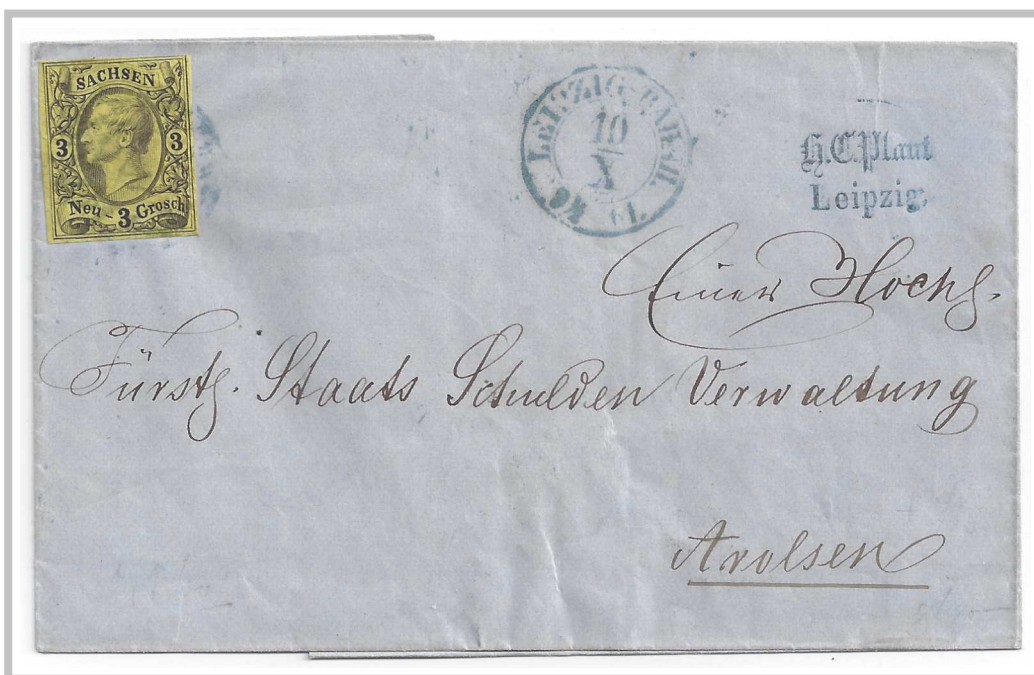 SACHSEN
3 3
Neu-3 Grosch
LEIPZIG-BAHNH.
10
X
61
H.C.Plaut
Leipzig.
Einer Hochl.
Fürstl. Staats Schulden Verwaltung
Arolsen